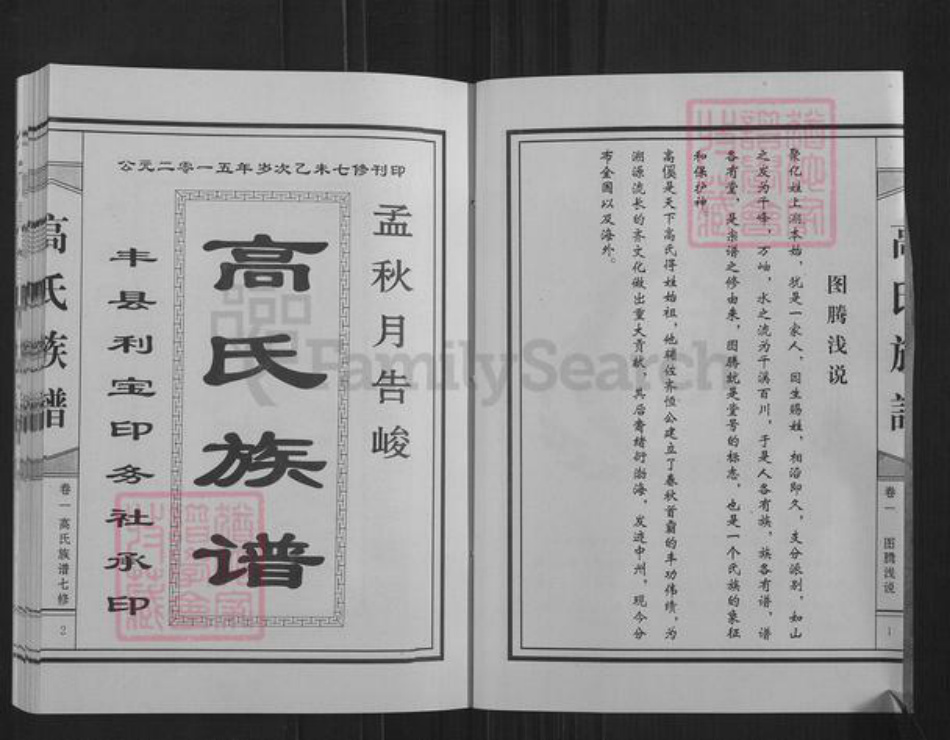 高氏族谱
卷一
图腾浅说
1
图腾浅说
聚亿姓上溯本始，犹是一家人，因生赐姓，相沿即久，支分派别，如山
之发为千峰，万岫，水之流为千溪百川，于是人各有族，族各有谱，谱
各有堂，是宗谱之修由来，图腾就是堂号的标志，也是一个氏族的象征
和保护神。
高傒是天下高氏得姓始祖，他辅佐齐恒公建立了春秋首霸的丰功伟绩，为
溯源流长的齐文化做出重大贡献，其后裔绪衍渤海，发迹中州，现今分
布全国以及海外。
公元二零一五年岁次乙未七修刊印
孟秋月告峻
高氏族谱
丰县利宝印务社承印
高氏族谱
卷一
高氏族谱七修
2
FamilySearch